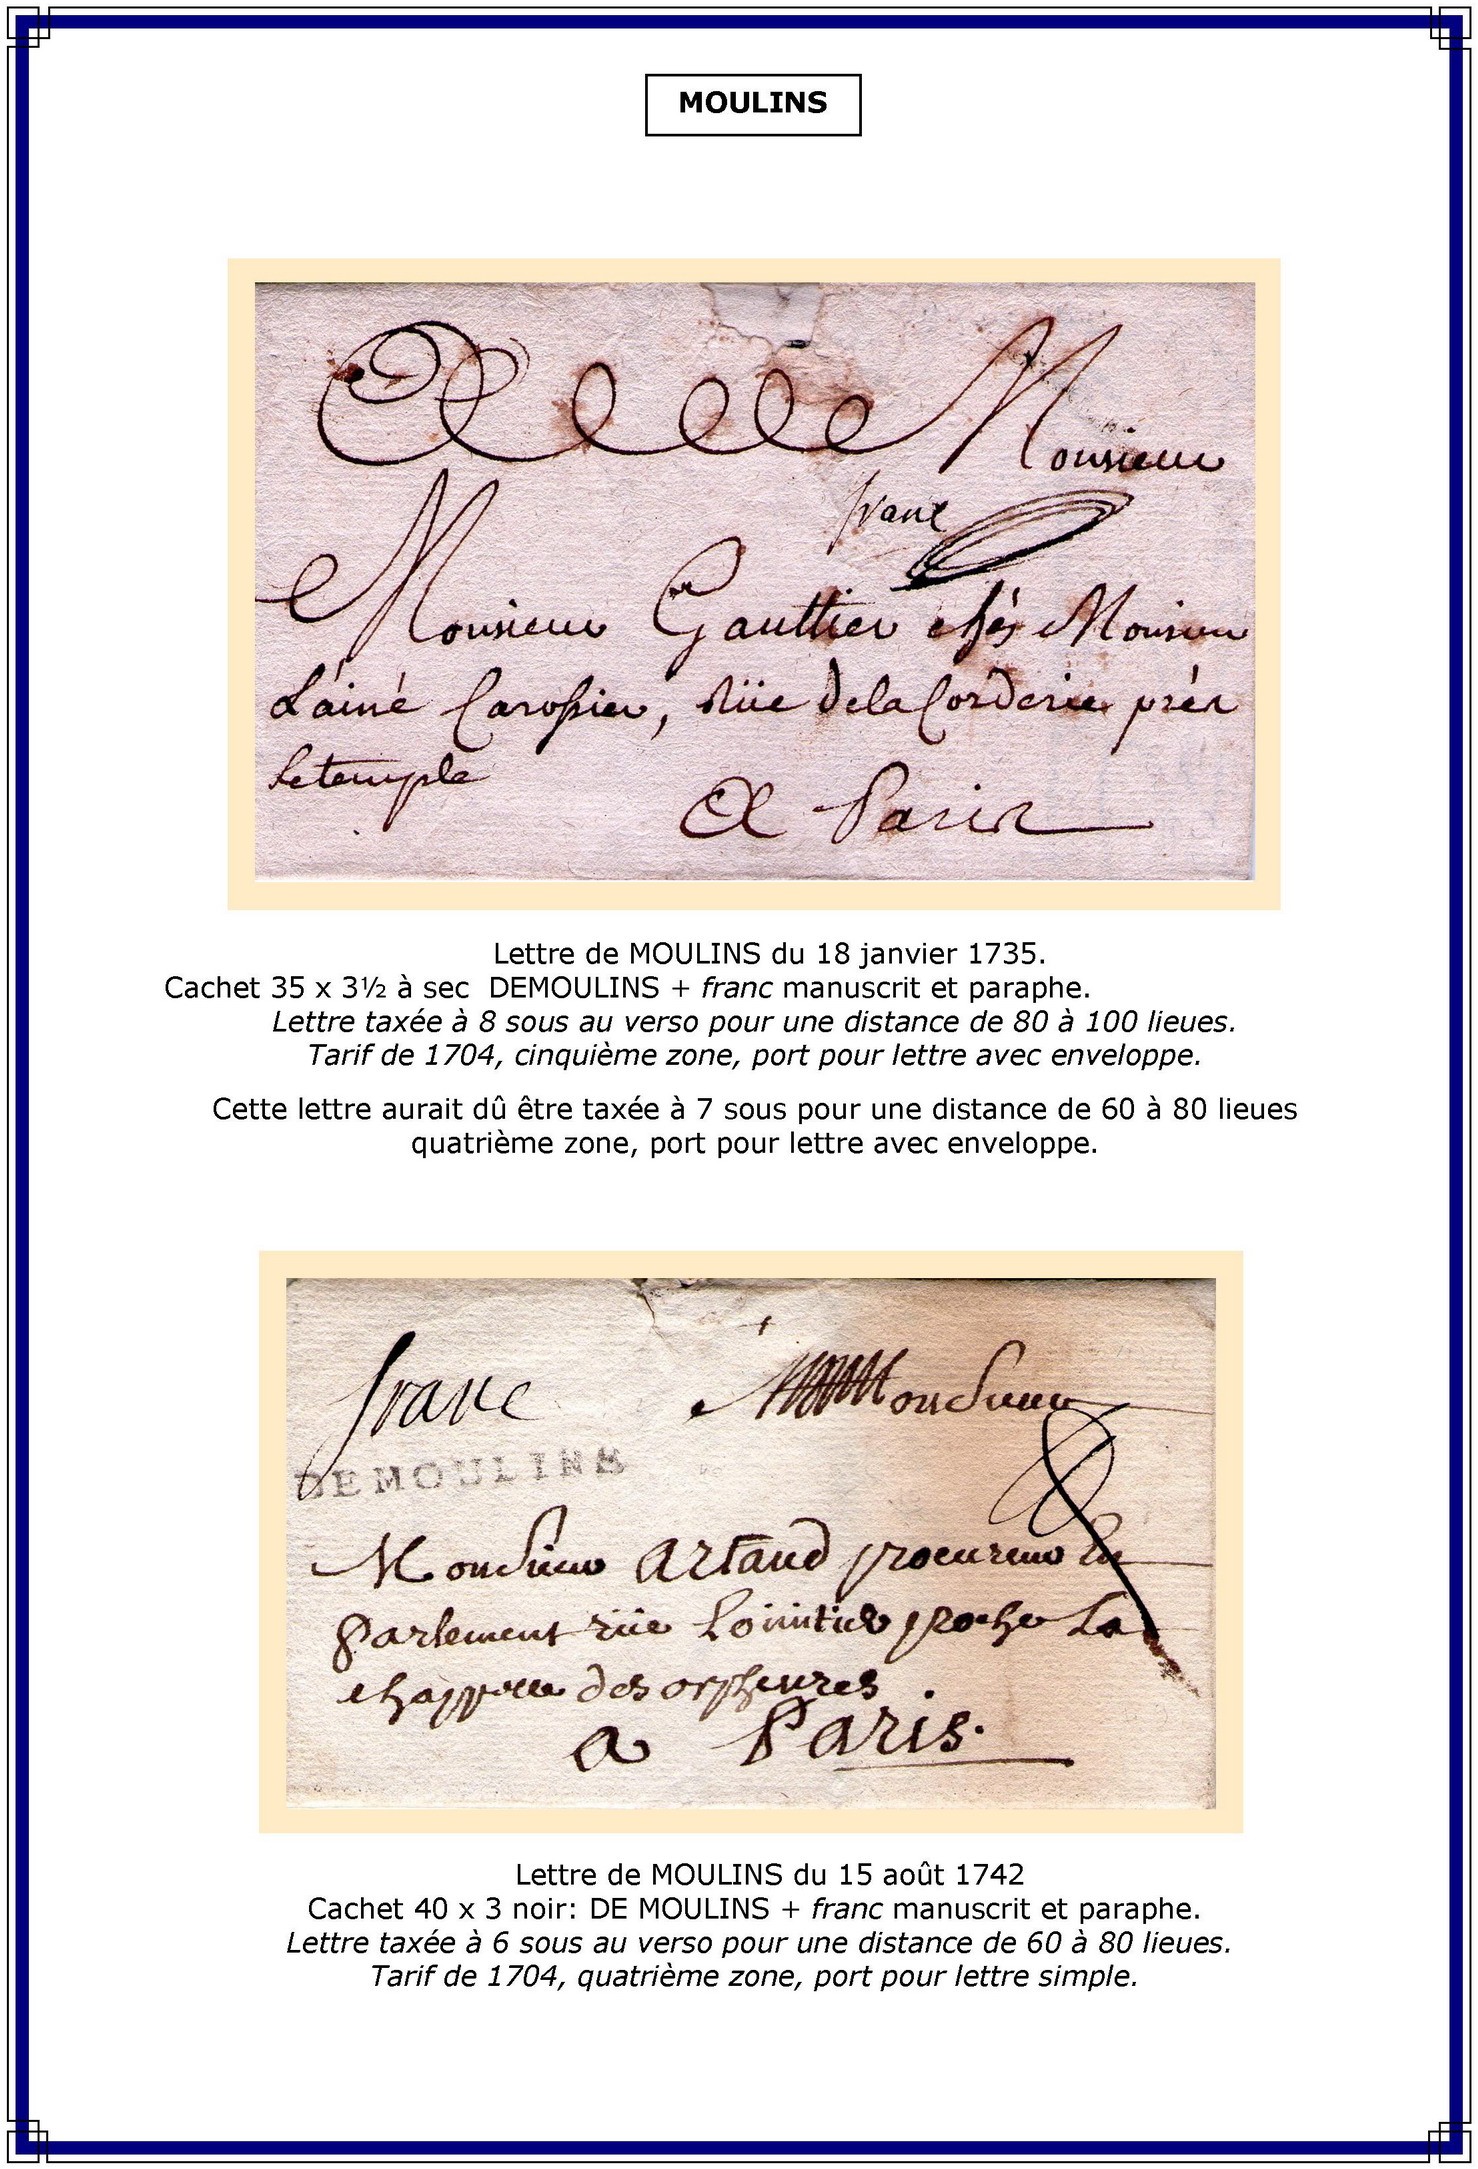 MOULINS
Monsieur
franc
Monsieur Gauttier chés Monsieur
L'ainé Carossier, rüe dela Corderie prés
le temple
A Paris
Lettre de MOULINS du 18 janvier 1735.
Cachet 35 x 3½ à sec DEMOULINS + franc manuscrit et paraphe.
Lettre taxée à 8 sous au verso pour une distance de 80 à 100 lieues.
Tarif de 1704, cinquième zone, port pour lettre avec enveloppe.
Cette lettre aurait dû être taxée à 7 sous pour une distance de 60 à 80 lieues
quatrième zone, port pour lettre avec enveloppe.
franc Monsieur
DEMOULINS
Monsieur Artaud procureur en
parlement rüe proche La
chappelle des orpheures
a Paris.
Lettre de MOULINS du 15 août 1742
Cachet 40 x 3 noir: DE MOULINS + franc manuscrit et paraphe.
Lettre taxée à 6 sous au verso pour une distance de 60 à 80 lieues.
Tarif de 1704, quatrième zone, port pour lettre simple.